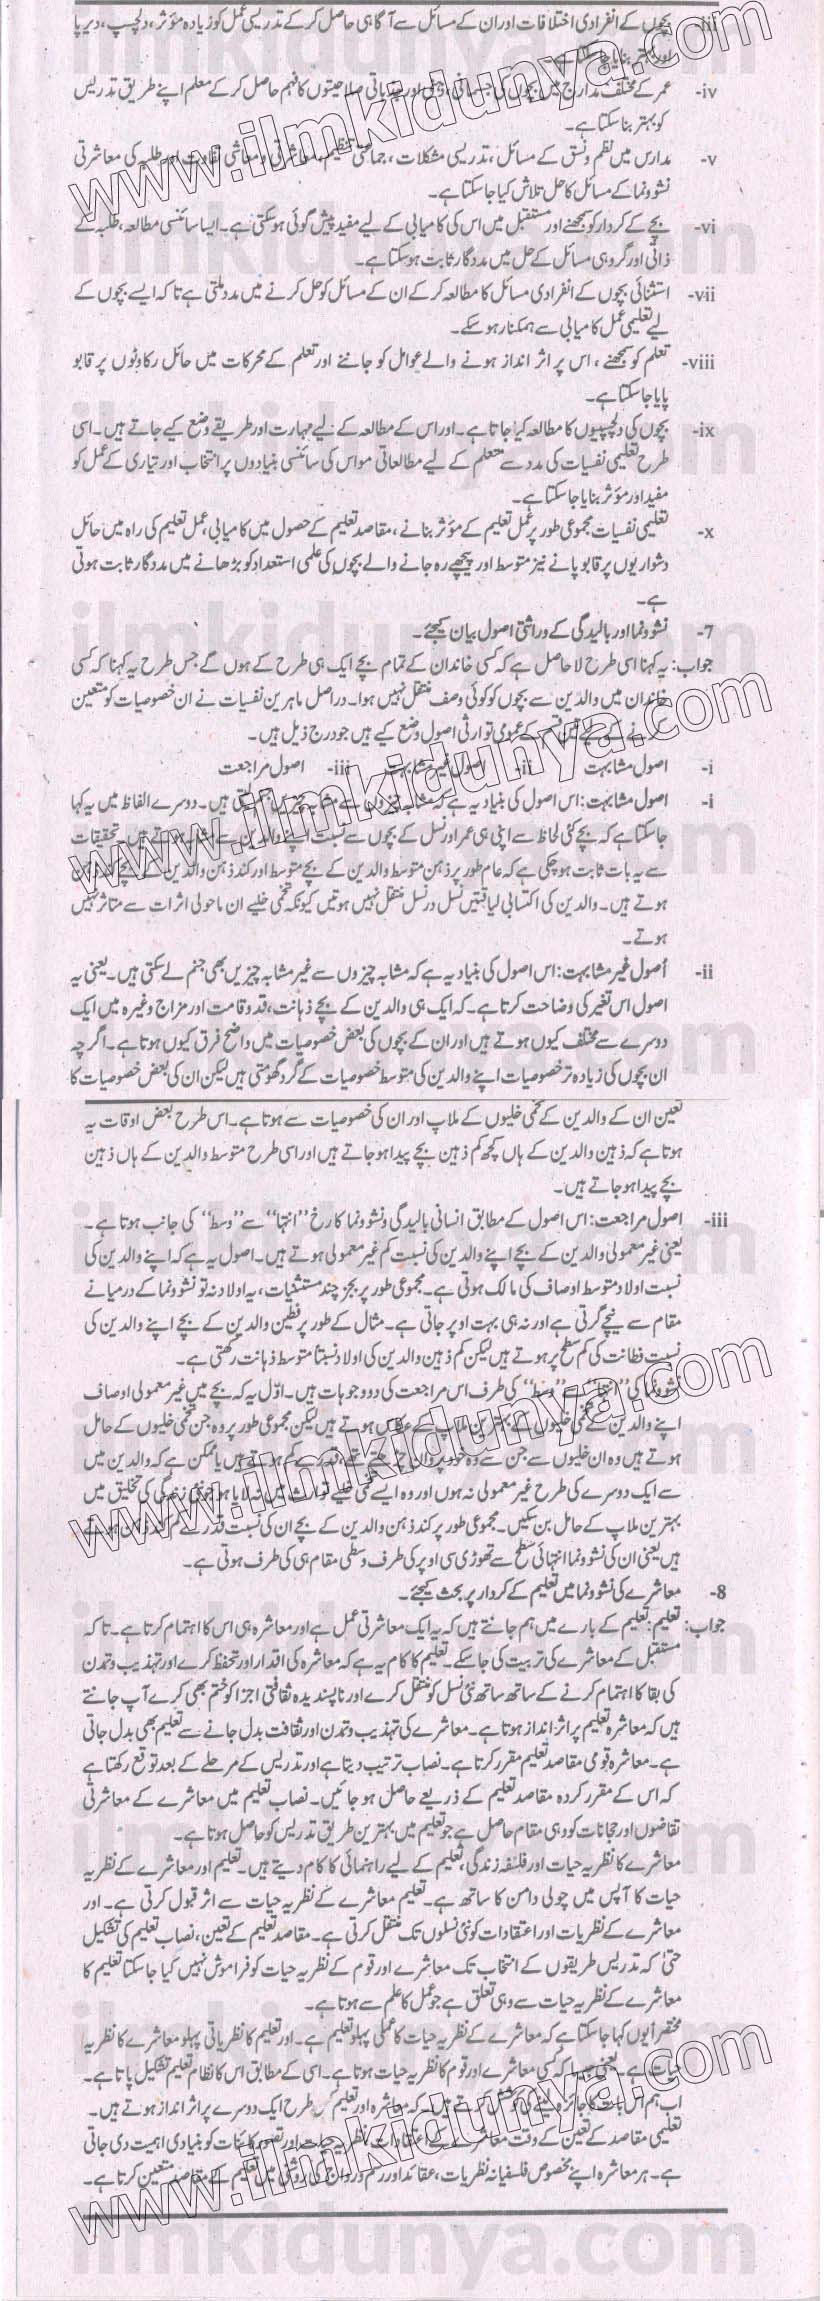 iii- بچوں کے انفرادی اختلافات اور ان کے مسائل سے آگاہی حاصل کر کے تدریسی عمل کو زیادہ مؤثر، دلچسپ، دیرپا
اور بہتر بنایا جا سکتا ہے۔
iv- عمر کے مختلف مدارج میں بچوں کی جسمانی، ذہنی اور جذباتی صلاحیتوں کا فہم حاصل کر کے معلم اپنے طریق تدریس
کو بہتر بنا سکتا ہے۔
v- مدارس میں نظم و نسق کے مسائل، تدریسی مشکلات، جماعتی تنظیم، معاشرتی و معاشی تفاوت اور طلبہ کی معاشرتی
نشوونما کے مسائل کا حل تلاش کیا جا سکتا ہے۔
vi- بچے کے کردار کو سمجھنے اور مستقبل میں اس کی کامیابی کے لیے مفید پیش گوئی ہو سکتی ہے۔ ایسا سائنسی مطالعہ، طلبہ کے
ذاتی اور گروہی مسائل کے حل میں مددگار ثابت ہو سکتا ہے۔
vii- استثنائی بچوں کے انفرادی مسائل کا مطالعہ کر کے ان کے مسائل کو حل کرنے میں مدد ملتی ہے تاکہ ایسے بچوں کے
لیے تعلیمی عمل کامیابی سے ہمکنار ہو سکے۔
viii- تعلم کو سمجھنے، اس پر اثر انداز ہونے والے عوامل کو جاننے اور تعلم کے محرکات میں حائل رکاوٹوں پر قابو
پایا جا سکتا ہے۔
ix- بچوں کی دلچسپیوں کا مطالعہ کیا جاتا ہے۔ اور اس کے مطالعہ کے لیے مہارت اور طریقے وضع کیے جاتے ہیں۔ اسی
طرح تعلیمی نفسیات کی مدد سے متعلم کے لیے مطالعاتی مواس کی سائنسی بنیادوں پر انتخاب اور تیاری کے عمل کو
مفید اور مؤثر بنایا جا سکتا ہے۔
x- تعلیمی نفسیات مجموعی طور پر عمل تعلیم کے مؤثر بنانے، مقاصد تعلیم کے حصول میں کامیابی، عمل تعلیم کی راہ میں حائل
دشواریوں پر قابو پانے نیز متوسط اور پیچھے رہ جانے والے بچوں کی علمی استعداد کو بڑھانے میں مددگار ثابت ہوتی
ہے۔
7- نشوونما اور بالیدگی کے وراثتی اصول بیان کیجئے۔
جواب: یہ کہنا اسی طرح لاحاصل ہے کہ کسی خاندان کے تمام بچے ایک ہی طرح کے ہوں گے جس طرح یہ کہنا کہ کسی
خاندان میں والدین سے بچوں کو کوئی وصف منتقل نہیں ہوا۔ دراصل ماہرین نفسیات نے ان خصوصیات کو متعین
کرنے کے لیے تین قسم کے عمومی توارثی اصول وضع کیے ہیں جو درج ذیل ہیں۔
i- اصول مشابہت ii- اصول غیر مشابہت iii- اصول مراجعت
i- اصول مشابہت: اس اصول کی بنیاد یہ ہے کہ مشابہ چیزوں سے مشابہ چیزیں جنم لیتی ہیں۔ دوسرے الفاظ میں یہ کہا
جا سکتا ہے کہ بچے کئی لحاظ سے اپنی ہی عمر اور نسل کے بچوں سے نسبت اپنے والدین سے مشابہ ہوتے ہیں۔ تحقیقات
سے یہ بات ثابت ہو چکی ہے کہ عام طور پر ذہن متوسط والدین کے بچے متوسط اور کند ذہن والدین کے بچے کند ذہن
ہوتے ہیں۔ والدین کی اکتسابی لیاقتیں نسل در نسل منتقل نہیں ہوتیں کیونکہ تخمی خلیے ان ماحولی اثرات سے متاثر نہیں
ہوتے۔
ii- اُصول غیر مشابہت: اس اصول کی بنیاد یہ ہے کہ مشابہ چیزوں سے غیر مشابہ چیزیں بھی جنم لے سکتی ہیں۔ یعنی یہ
اصول اس تغیر کی وضاحت کرتا ہے۔ کہ ایک ہی والدین کے بچے ذہانت، قد و قامت اور مزاج وغیرہ میں ایک
دوسرے سے مختلف کیوں ہوتے ہیں اور ان کے بچوں کی بعض خصوصیات میں واضح فرق کیوں ہوتا ہے۔ اگرچہ
ان بچوں کی زیادہ تر خصوصیات اپنے والدین کی متوسط خصوصیات کے گرد گھومتی ہیں لیکن ان کی بعض خصوصیات کا
تعین ان کے والدین کے تخمی خلیوں کے ملاپ اور ان کی خصوصیات سے ہوتا ہے۔ اس طرح بعض اوقات یہ
ہوتا ہے کہ ذہین والدین کے ہاں کچھ کم ذہین بچے پیدا ہو جاتے ہیں اور اسی طرح متوسط والدین کے ہاں ذہین
بچے پیدا ہو جاتے ہیں۔
iii- اصول مراجعت: اس اصول کے مطابق انسانی بالیدگی و نشوونما کا رخ "انتہا" سے "وسط" کی جانب ہوتا ہے۔
یعنی غیر معمولی والدین کے بچے اپنے والدین کی نسبت کم غیر معمولی ہوتے ہیں۔ اصول یہ ہے کہ اپنے والدین کی
نسبت اولاد متوسط اوصاف کی مالک ہوتی ہے۔ مجموعی طور پر بجز چند مستثنیات، یہ اولاد نہ تو نشوونما کے درمیانے
مقام سے نیچے گرتی ہے اور نہ ہی بہت اوپر جاتی ہے۔ مثال کے طور پر فطین والدین کے بچے اپنے والدین کی
نسبت فطانت کی کم سطح پر ہوتے ہیں لیکن کم ذہین والدین کی اولاد نسبتاً متوسط ذہانت رکھتی ہے۔
نشوونما کی "انتہا" سے "وسط" کی طرف اس مراجعت کی دو وجوہات ہیں۔ اوّل یہ کہ بچے میں غیر معمولی اوصاف
اپنے والدین کے تخمی خلیوں کے بہترین ملاپ کے ہوتے ہیں لیکن مجموعی طور پر وہ جن تخمی خلیوں کے حامل
ہوتے ہیں وہ ان خلیوں سے جن سے وہ خود پروان چڑھے تھے، قدرے کم ہوتے ہیں یا ممکن ہے کہ والدین میں
سے ایک دوسرے کی طرح غیر معمولی نہ ہوں اور وہ ایسے تخمی خلیے توارث میں نہ لایا ہو جو نئی زندگی کی تخلیق میں
بہترین ملاپ کے حامل بن سکیں۔ مجموعی طور پر کند ذہن والدین کے بچے ان کی نسبت قدرے کم کند ذہن ہوتے
ہیں یعنی ان کی نشوونما انتہائی سطح سے تھوڑی سی اوپر کی طرف وسطی مقام ہی کی طرف ہوتی ہے۔
8- معاشرے کی نشوونما میں تعلیم کے کردار پر بحث کیجئے۔
جواب: تعلیم: تعلیم کے بارے میں ہم جانتے ہیں کہ یہ ایک معاشرتی عمل ہے اور معاشرہ ہی اس کا اہتمام کرتا ہے۔ تاکہ
مستقبل کے معاشرے کی تربیت کی جا سکے۔ تعلیم کا کام یہ ہے کہ معاشرہ کی اقدار اور تحفظ کرے اور تہذیب و تمدن
کی بقا کا اہتمام کرنے کے ساتھ ساتھ نئی نسل کو منتقل کرے اور ناپسندیدہ ثقافتی اجزا کو ختم بھی کرے آپ جانتے
ہیں کہ معاشرہ تعلیم پر اثر انداز ہوتا ہے۔ معاشرے کی تہذیب و تمدن اور ثقافت بدل جانے سے تعلیم بھی بدل جاتی
ہے۔ معاشرہ قومی مقاصد تعلیم مقرر کرتا ہے۔ نصاب ترتیب دیتا ہے اور تدریس کے مرحلے کے بعد توقع رکھتا ہے
کہ اس کے مقرر کردہ مقاصد تعلیم کے ذریعے حاصل ہو جائیں۔ نصاب تعلیم میں معاشرے کے معاشرتی
تقاضوں اور رجحانات کو وہی مقام حاصل ہے جو تعلیم میں بہترین طریق تدریس کو حاصل ہوتا ہے۔
معاشرے کا نظریہ حیات اور فلسفہ زندگی، تعلیم کے لیے راہنمائی کا کام دیتے ہیں۔ تعلیم اور معاشرے کے نظریہ
حیات کا آپس میں چولی دامن کا ساتھ ہے۔ تعلیم معاشرے کے نظریہ حیات سے اثر قبول کرتی ہے۔ اور
معاشرے کے نظریات اور اعتقادات کو نئی نسلوں تک منتقل کرتی ہے۔ مقاصد تعلیم کے تعین، نصاب تعلیم کی تشکیل
حتیٰ کہ تدریس طریقوں کے انتخاب تک معاشرے اور قوم کے نظریہ حیات کو فراموش نہیں کیا جا سکتا تعلیم کا
معاشرے کے نظریہ حیات سے وہی تعلق ہے جو عمل کا علم سے ہوتا ہے۔
مختصراً یوں کہا جا سکتا ہے کہ معاشرے کے نظریہ حیات کا عملی پہلو تعلیم ہے۔ اور تعلیم کا نظریاتی پہلو معاشرے کا نظریہ
حیات ہے۔ یعنی جیسا کہ کسی معاشرے اور قوم کا نظریہ حیات ہوتا ہے۔ اسی کے مطابق اس کا نظام تعلیم تشکیل پاتا ہے۔
اب ہم اس بات کا جائزہ لینے کی کوشش کرتے ہیں۔ کہ معاشرہ اور تعلیم کس طرح ایک دوسرے پر اثر انداز ہوتے ہیں۔
تعلیمی مقاصد کے تعین کے وقت معاشرے کے اعتقادات، نظریہ حیات اور تصور کائنات کو بنیادی اہمیت دی جاتی
ہے۔ ہر معاشرہ اپنے مخصوص فلسفیانہ نظریات، عقائد اور رسم و رواج کی روشنی میں تعلیم کے مقاصد متعین کرتا ہے۔
www.ilmkidunya.com